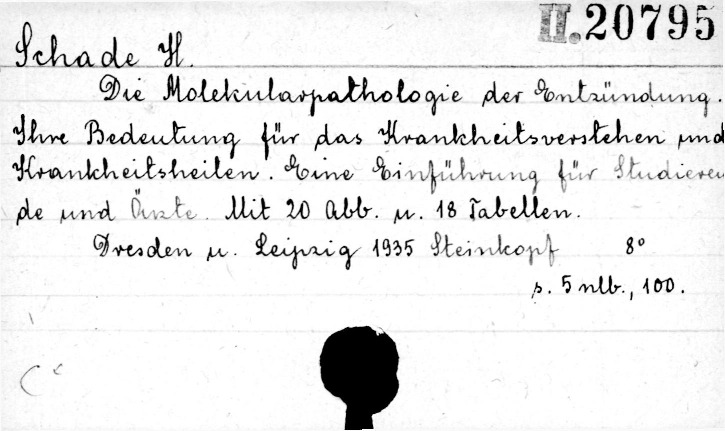 II.20795
Schade H.
Die Molekularpathologie der Entzündung.
Ihre Bedeutung für das Krankheitsverstehen und
Krankheitsheilen. Eine Einführung für Studieren
de und Ärzte. Mit 20 Abb. u. 18 Tabellen.
Dresden u. Leipzig 1935 Steinkopf 8°
s. 5 nlb., 100.